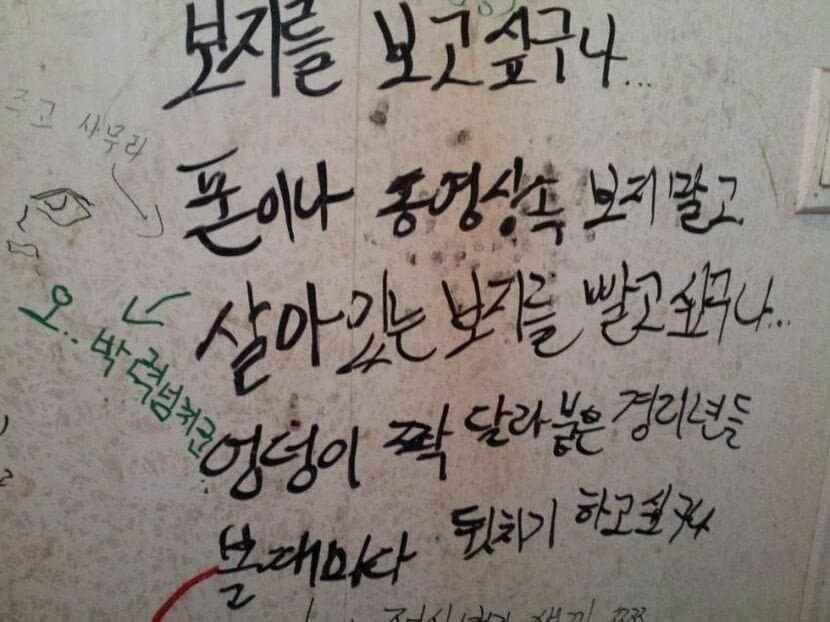 보지를 보고 싶구나...
즈고 사무라
폰이나 동영상속 보지 말고
살아 있는 보지를 빨고 싶구나...
오.. 박력넘치군..
엉덩이 짝 달라붙은 경리년들
볼때마다 뒷치기 하고싶구나